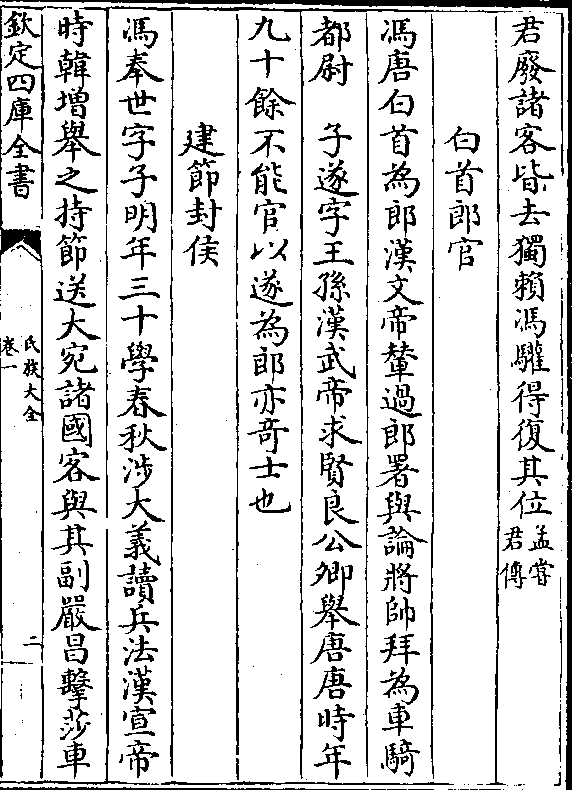 君廢諸客皆去獨賴馮驩得復其位孟嘗君傳
白首郎官
馮唐白首為郎漢文帝輦過郎署與論將帥拜為車騎
都尉　子遂字王孫漢武帝求賢良公卿舉唐唐時年
九十餘不能官以遂為郎亦竒士也
建節封侯
馮奉世字子明年三十學春秋涉大義讀兵法漢宣帝
時韓增舉之持節送大宛諸國客與其副嚴昌擊莎車
欽定四庫全書
氏族大全
卷一
二